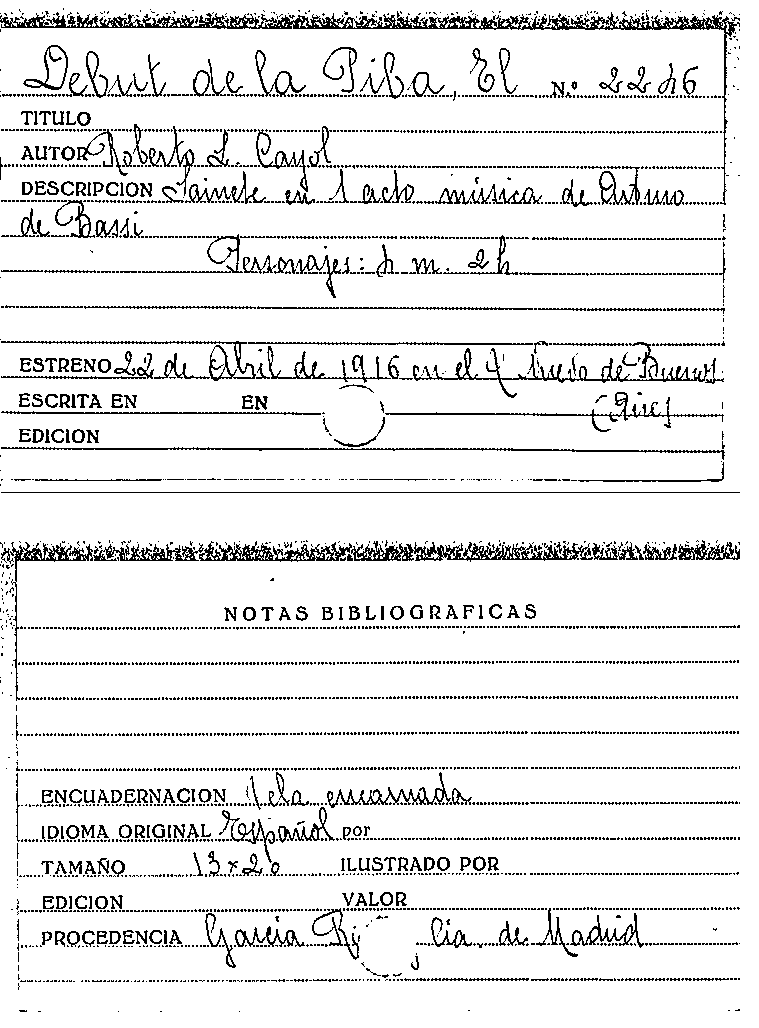 Debut de la Piba, El N.º 2246
TITULO
AUTOR Roberto L. Cayol
DESCRIPCION Sainete en 1 acto música de Arturo
de Bassi
Personajes: 4 m. 2 h
ESTRENO 22 de Abril de 1916 en el Tº Nuevo de Buenos
(Aires
ESCRITA EN EN
EDICION
NOTAS BIBLIOGRAFICAS
ENCUADERNACION Tela encarnada
IDIOMA ORIGINAL Español por
TAMAÑO 13 x 20 ILUSTRADO POR
EDICION VALOR
PROCEDENCIA Garcia cia. de Madrid